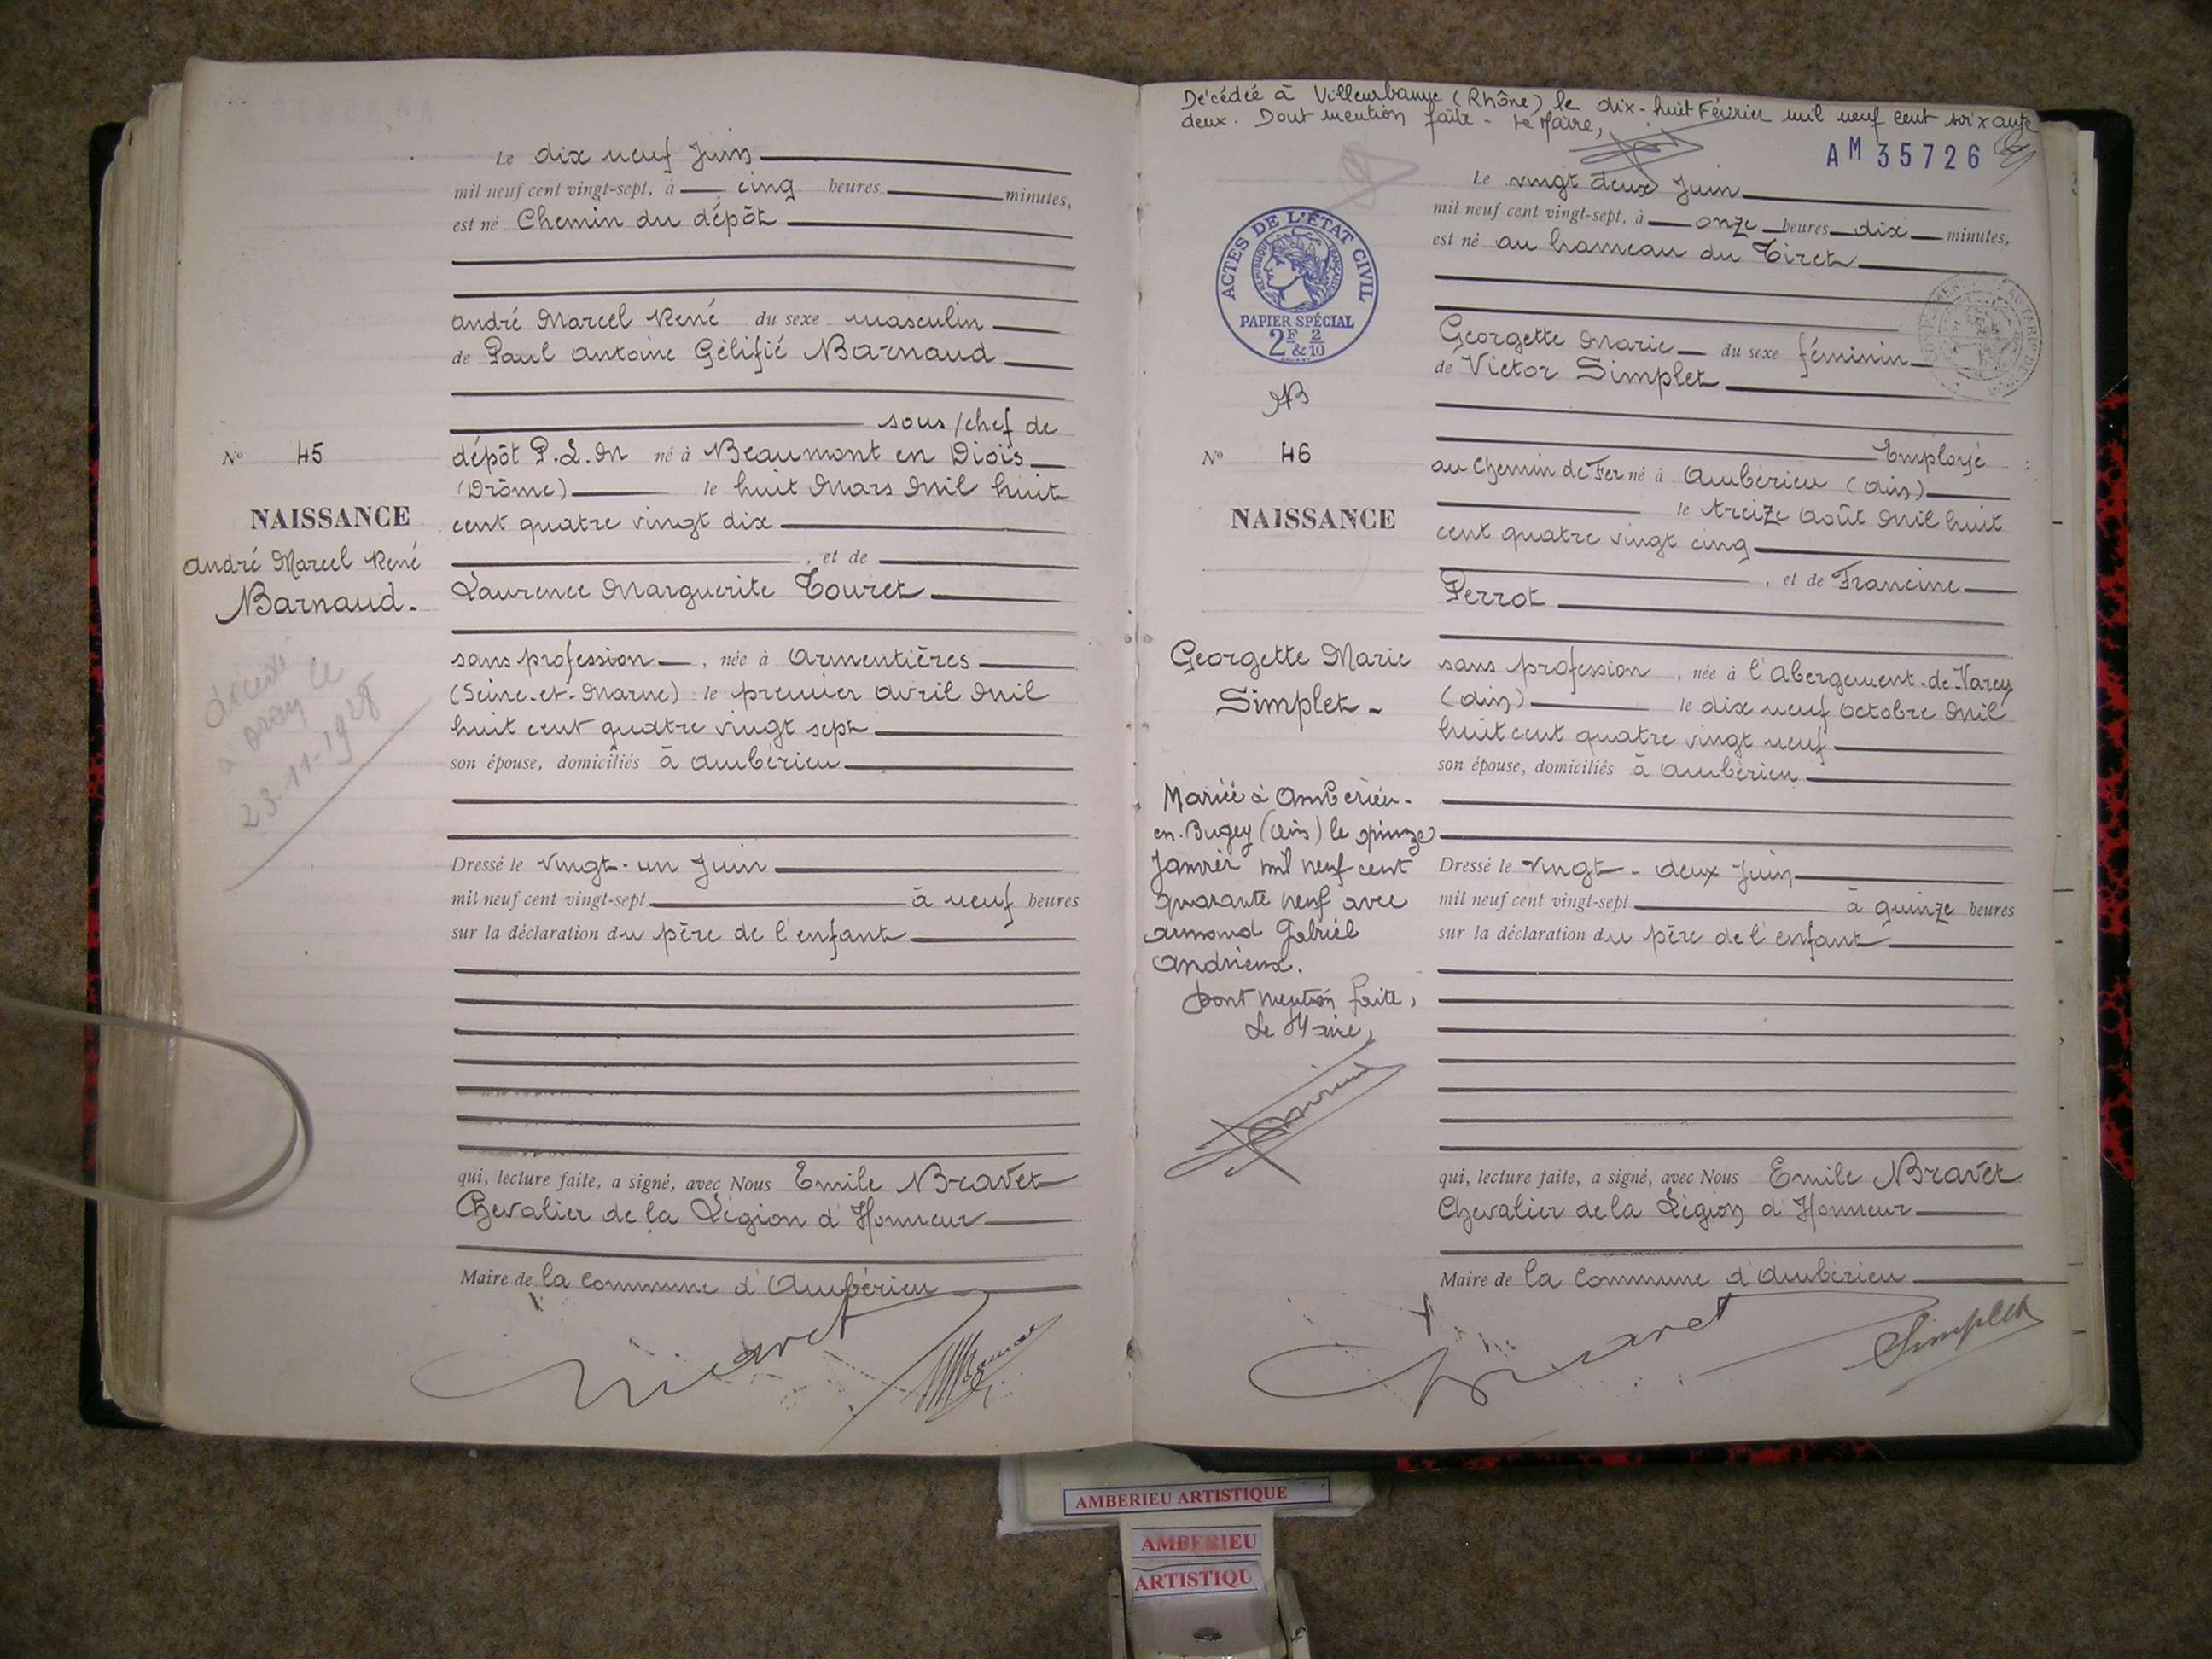 Le dix neuf Juin
mil neuf cent vingt-sept, à cinq heures minutes,
est né Chemin du dépôt
André Marcel René du sexe masculin
de Paul Antoine Gélifié Barnaud
sous/chef de
dépôt P.L.M né à Beaumont en Diois
(Drôme) le huit Mars Mil huit
cent quatre vingt dix
, et de
Laurence Marguerite Touret
sans profession , née à Armentières
(Seine-et-Marne) le premier Avril Mil
huit cent quatre vingt sept
son épouse, domiciliés à Ambérieu
Dressé le vingt-un Juin
mil neuf cent vingt-sept à neuf heures
sur la déclaration du père de l'enfant
qui, lecture faite, a signé, avec Nous Emile Bravet
Chevalier de la Légion d'Honneur
Maire de la Commune d'Ambérieu
N° 45
NAISSANCE
André Marcel René
Barnaud.
décédé
à le
23-11-1928
Décédée à Villeurbanne (Rhône) le dix-huit Février mil neuf cent soixante
deux. Dont mention faite - Le Maire,
AM 35726
Le vingt deux Juin
mil neuf cent vingt-sept, à onze heures dix minutes,
est né au hameau du Tiret
Georgette Marie du sexe féminin
de Victor Simplet
Employé
au Chemin de Fer né à Ambérieu (Ain)
le treize Août Mil huit
cent quatre vingt cinq
, et de Francine
Perrot
sans profession , née à l'Abergement-de-Varey
(Ain) le dix neuf Octobre Mil
huit cent quatre vingt neuf
son épouse, domiciliés à Ambérieu
Dressé le vingt-deux Juin
mil neuf cent vingt-sept à quinze heures
sur la déclaration du père de l'enfant
qui, lecture faite, a signé, avec Nous Emile Bravet
Chevalier de la Légion d'Honneur
Maire de la Commune d'Ambérieu
Simplet
ACTES DE L'ÉTAT CIVIL
RÉPUBLIQUE FRANÇAISE
PAPIER SPÉCIAL
2F & 2/10
N° 46
NAISSANCE
Georgette Marie
Simplet
Mariée à Ambérieu-
en-Bugey (Ain) le quinze
Janvier mil neuf cent
quarante neuf avec
Armand Gabriel
Andrieux.
Dont mention faite,
Le Maire,
AMBERIEU ARTISTIQUE
AMBERIEU
ARTISTIQU